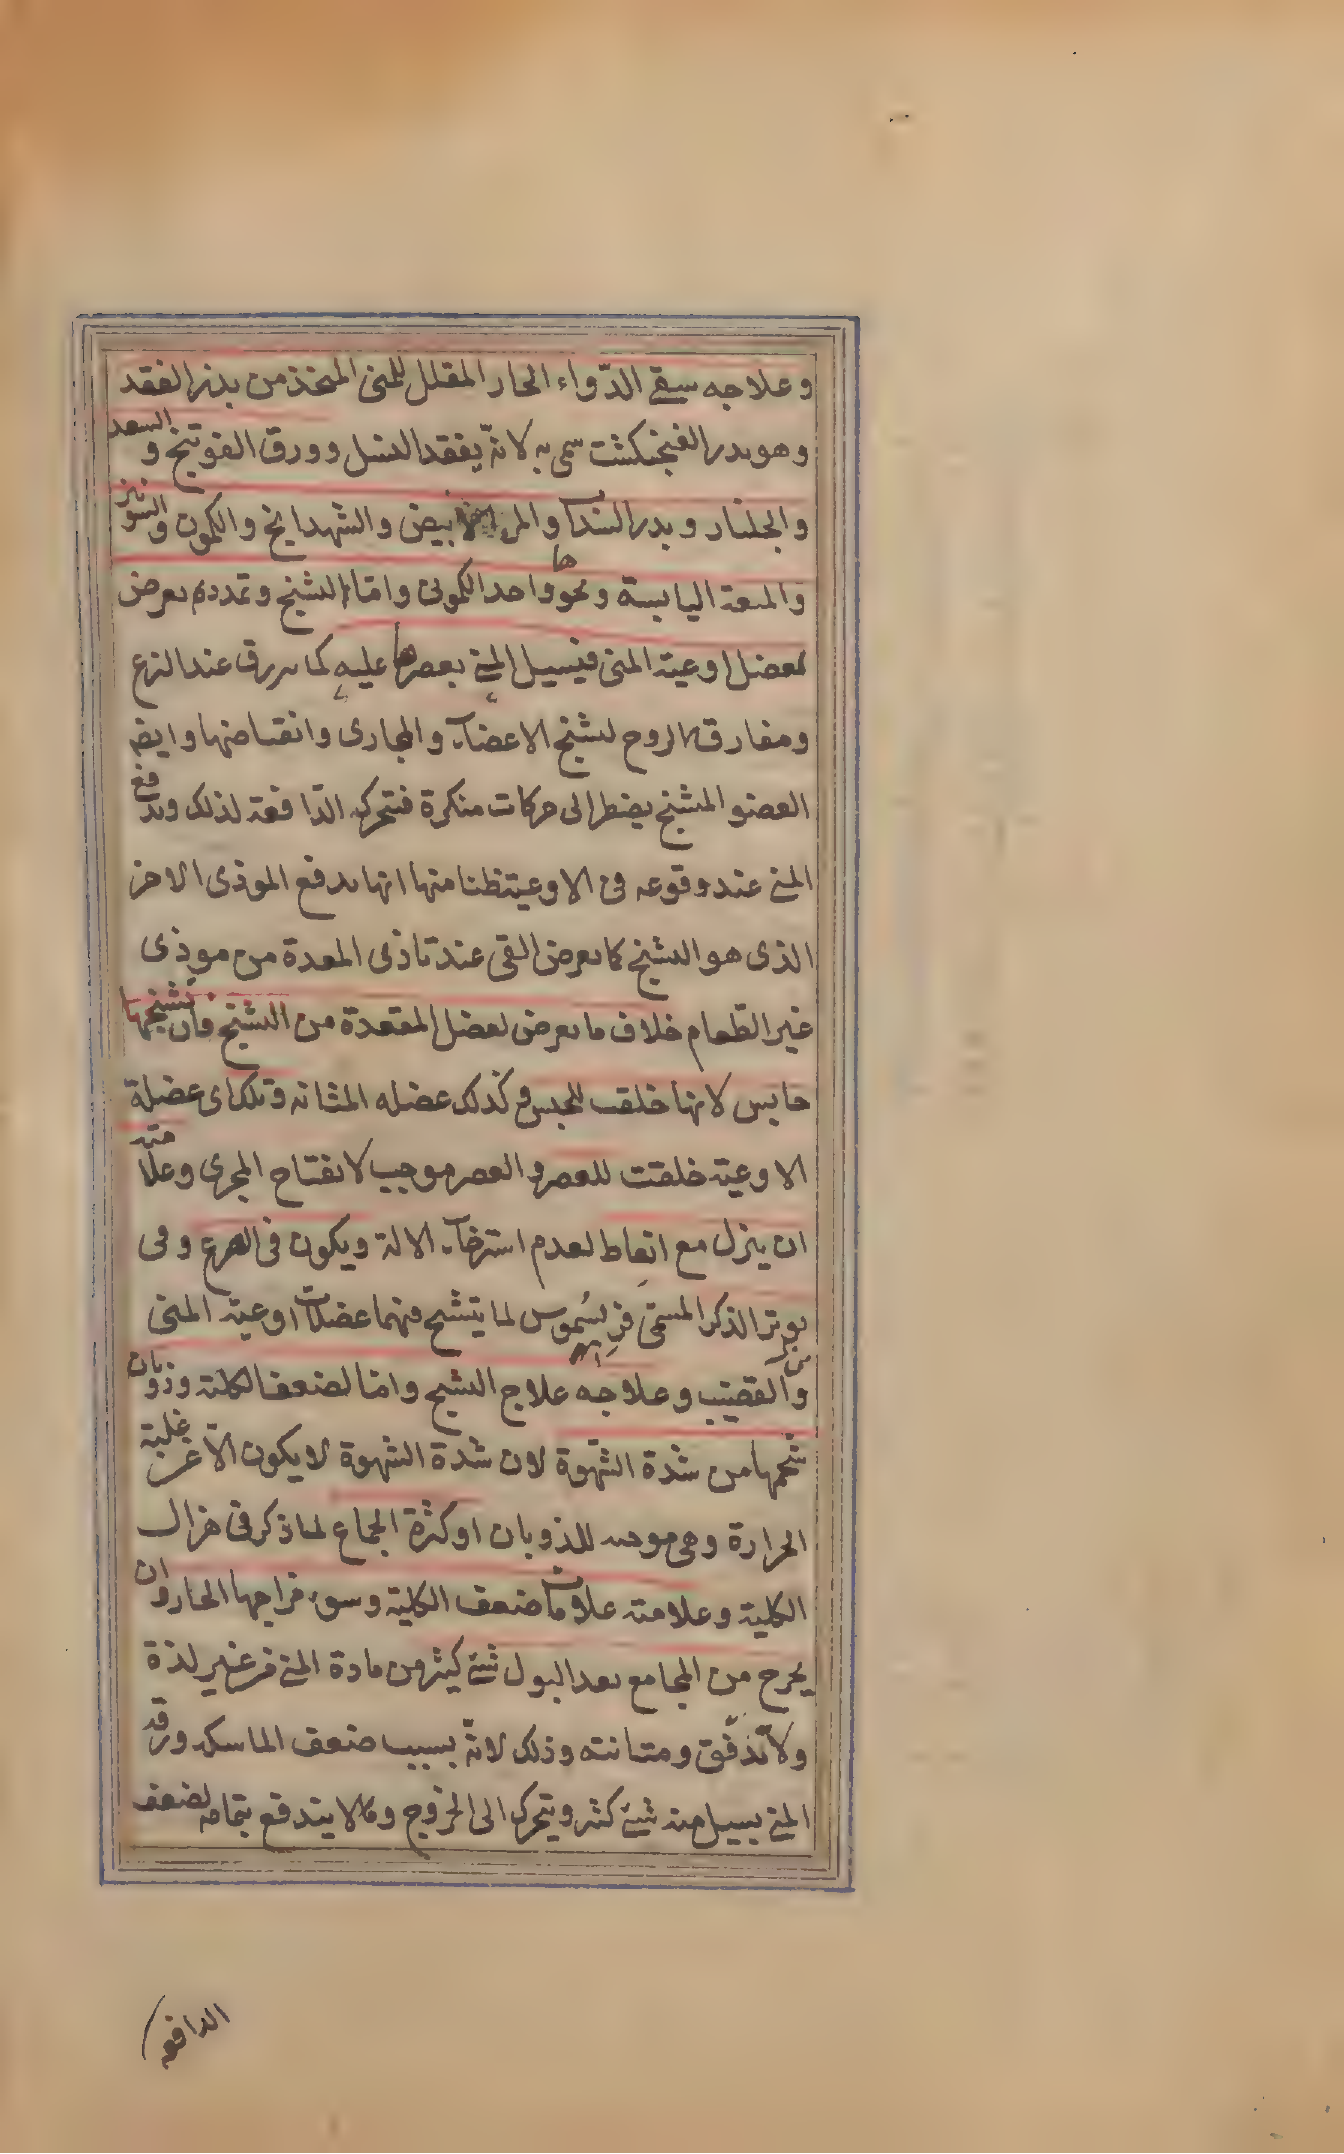 وعلاجه سقى الدّواء الحار المقلل للمنى المتخذ من بذر الفقد
وهو بذر الفنجنكشت سمى به لانّه يفقد النسل وورق الفوتنج والسعد
والجلنار وبذر السداب والابيض والشهدانج والكمون والشونيز
والمىعة اليابسة ونحوها واحد الكمونى واما التشنج وتمدد يعرض
لعضل اوعية المنى فيسيل المنى بعصرها عليه كما يزرق عند النزع
ومفارقة الروح لتشنج الاعضاء والمجارى وانقباضها وايضا
العضو المتشنج يضطر الى حركات منكرة فتتحرك الدّافعة لذلك وتدفع
المنى عند وقوعه فى الاوعية ظنا منها انها تدفع الموذى الاخر
الذى هو التشنج كما يعرض القى عند تاذى المعدة من موذى
غير الطّعام خلاف ما يعرض لعضل المقعدة من التشنج فان تشنجها
حابس لانها خلقت للحبس وكذلك عضله المثانه وتلك اى عضلة
الاوعية خلقت للعصر والعصر موجب لانفتاح المجرى وعلامته
ان ينزل مع انعاط لعدم استرخاء الالة ويكون فى الصرع وفى
توتر الذكر المسمى فريسموس لما يتشنج فيهما عضلات اوعية المنى
والقضيب وعلاجه علاج التشنج واما لضعف الكلية وذوبان
شحمها من شدة الشّهوة لان شدة الشهوة لا يكون الّا عن غلبة
الحرارة وهى موجبه للذوبان او كثرة الجماع لما ذكر فى هزال
الكلية وعلامته علامات ضعف الكلية وسوء مزاجها الحار وان
يخرج من المجامع بعد البول شئ كثير من مادة المنى من غير لذة
ولا تدفّق ومتانته وذلك لانّه بسبب ضعف الماسكه ورقة
المنى يسيل منه شئ كثير ويتحرك الى الخروج ولا يندفع بتمامه لضعف
الدافعه